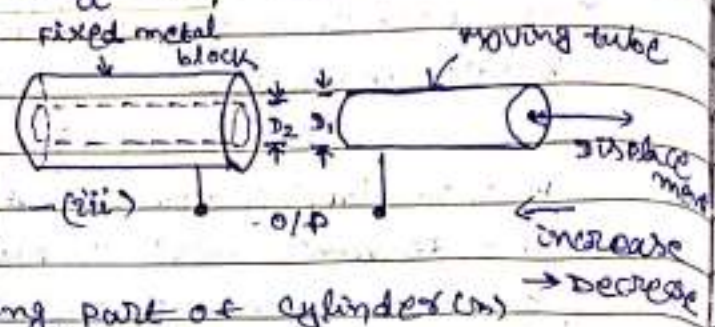 a
fixed metal block
moving tube
D2 D1
Displacement
(iii)
O/P
increase
Decrease
ng part of cylinder (m)